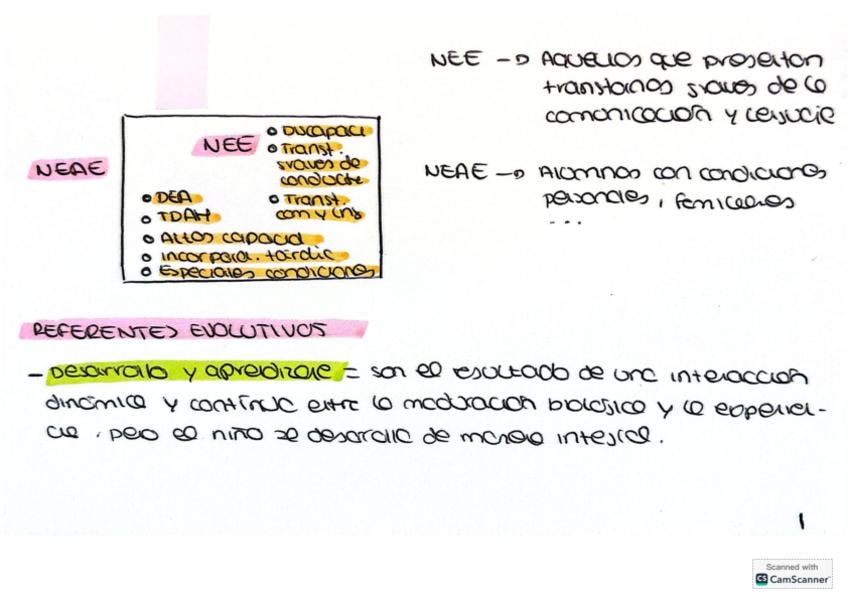 NEE → Aquellos que presentan
transtornos graves de la
comunicación y lenguaje
NEAE
NEE
• Discapaci
• Transt.
graves de
conducta
• Transt.
com y lng
• DEA
• TDAH
• Altas capacid
• incorpora. tardic
• Especiales condiciones
NEAE → Alumnos con condiciones
personales, familiares
...
REFERENTES EVOLUTIVOS
- Desarrollo y aprendizaje = son el resultado de una interacción
dinámica y continua entre la maduración biológica y la experien-
cia, pero el niño se desarrolla de manera integral.
1
Scanned with
CS CamScanner